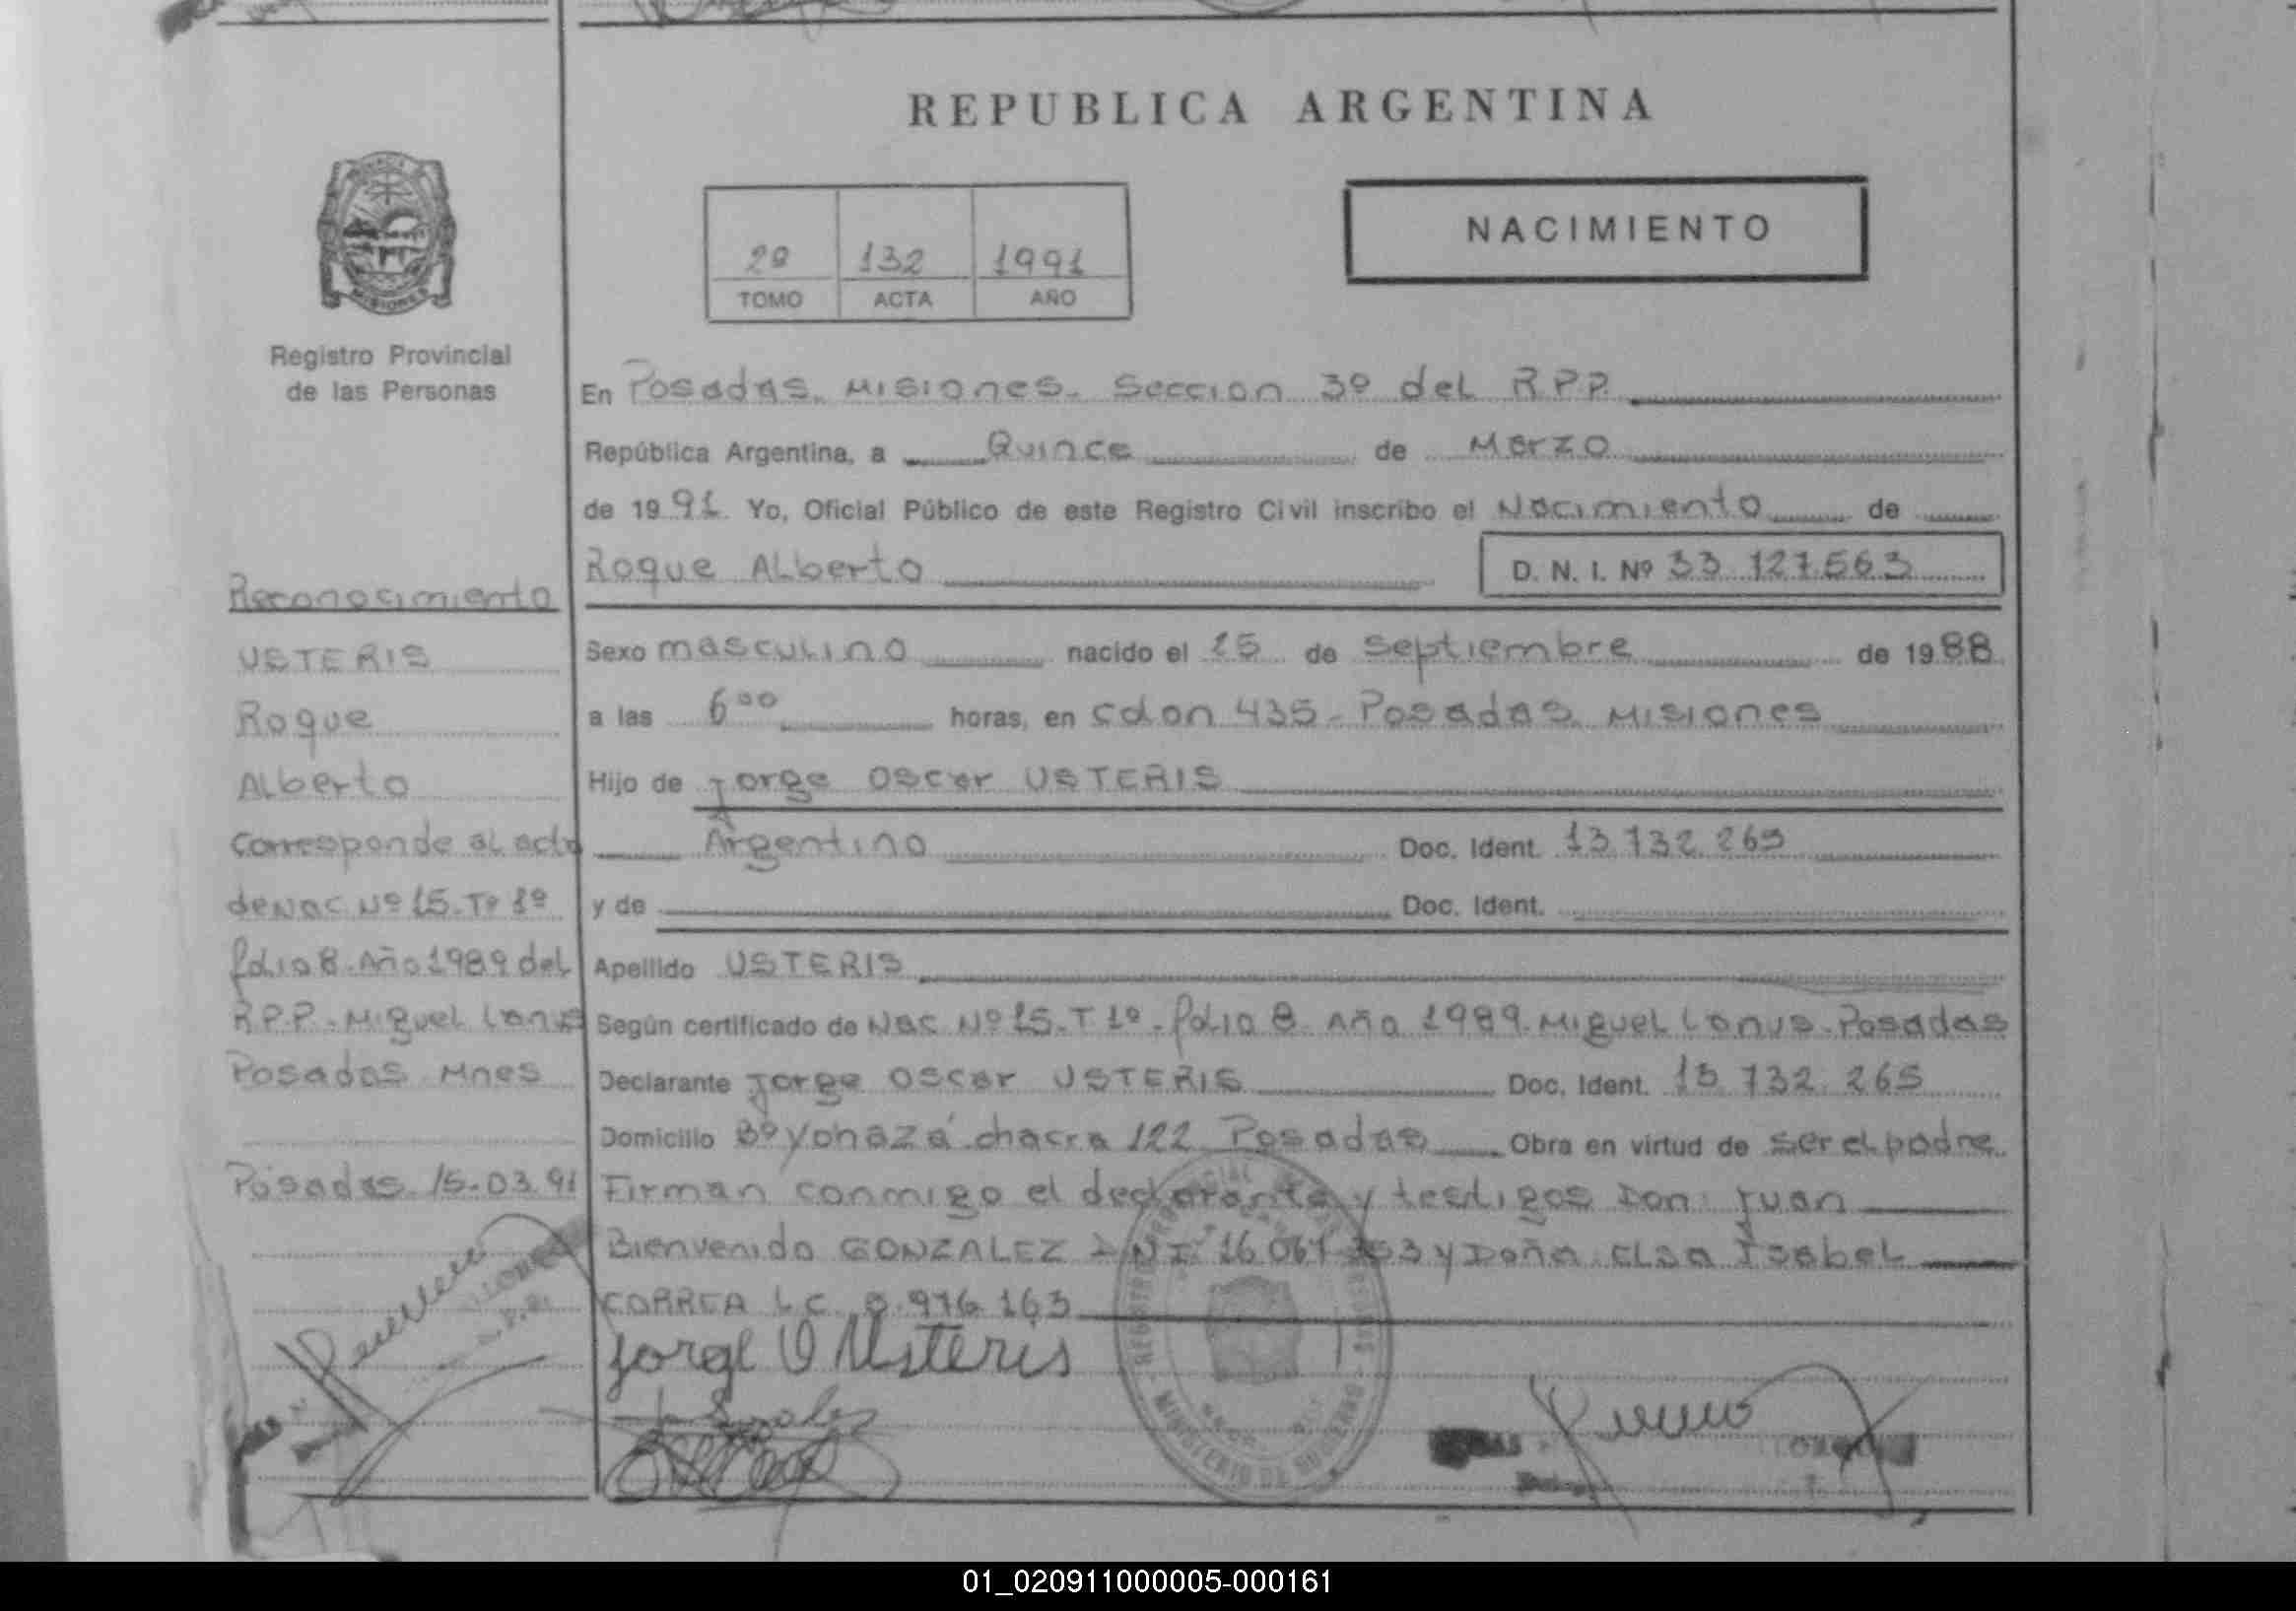 REPUBLICA ARGENTINA
NACIMIENTO
132 1991
TOMO ACTA AÑO
MISIONES
Registro Provincial
de las Personas
Reconocimiento
USTERIS
Roque
Alberto
Corresponde al acta
de Nac Nº 15. Tº 1º
folio 8. Año 1989 del
R.P.P. Miguel Lanus
Posadas Mnes
Posadas 15-03-91
En Posadas. Misiones. Seccion 3º del R.P.P.
República Argentina, a Quince de Marzo
de 1991 Yo, Oficial Público de este Registro Civil inscribo el Nacimiento de
Roque Alberto D. N. I. Nº 33.127.563
Sexo masculino nacido el 15 de Septiembre de 1988
a las 6 00 horas, en Colon 435 - Posadas Misiones
Hijo de Jorge Oscar USTERIS
Argentino Doc. Ident. 13.732.265
y de Doc. Ident.
Apellido USTERIS
Según certificado de Nac Nº 15. T 1º. folio 8 Año 1989. Miguel Lanus. Posadas
Declarante Jorge Oscar USTERIS Doc. Ident. 13.732.265
Domicilio Bº Yohazá chacra 122 Posadas Obra en virtud de ser el padre
Firman conmigo el declarante y testigos Don: Juan
Bienvenido GONZALEZ D.N.I. y Doña Elsa Isabel
CORREA L.C. 976.163
Jorge O Usteris
MINISTERIO DE GOBIERNO
01_020911000005-000161